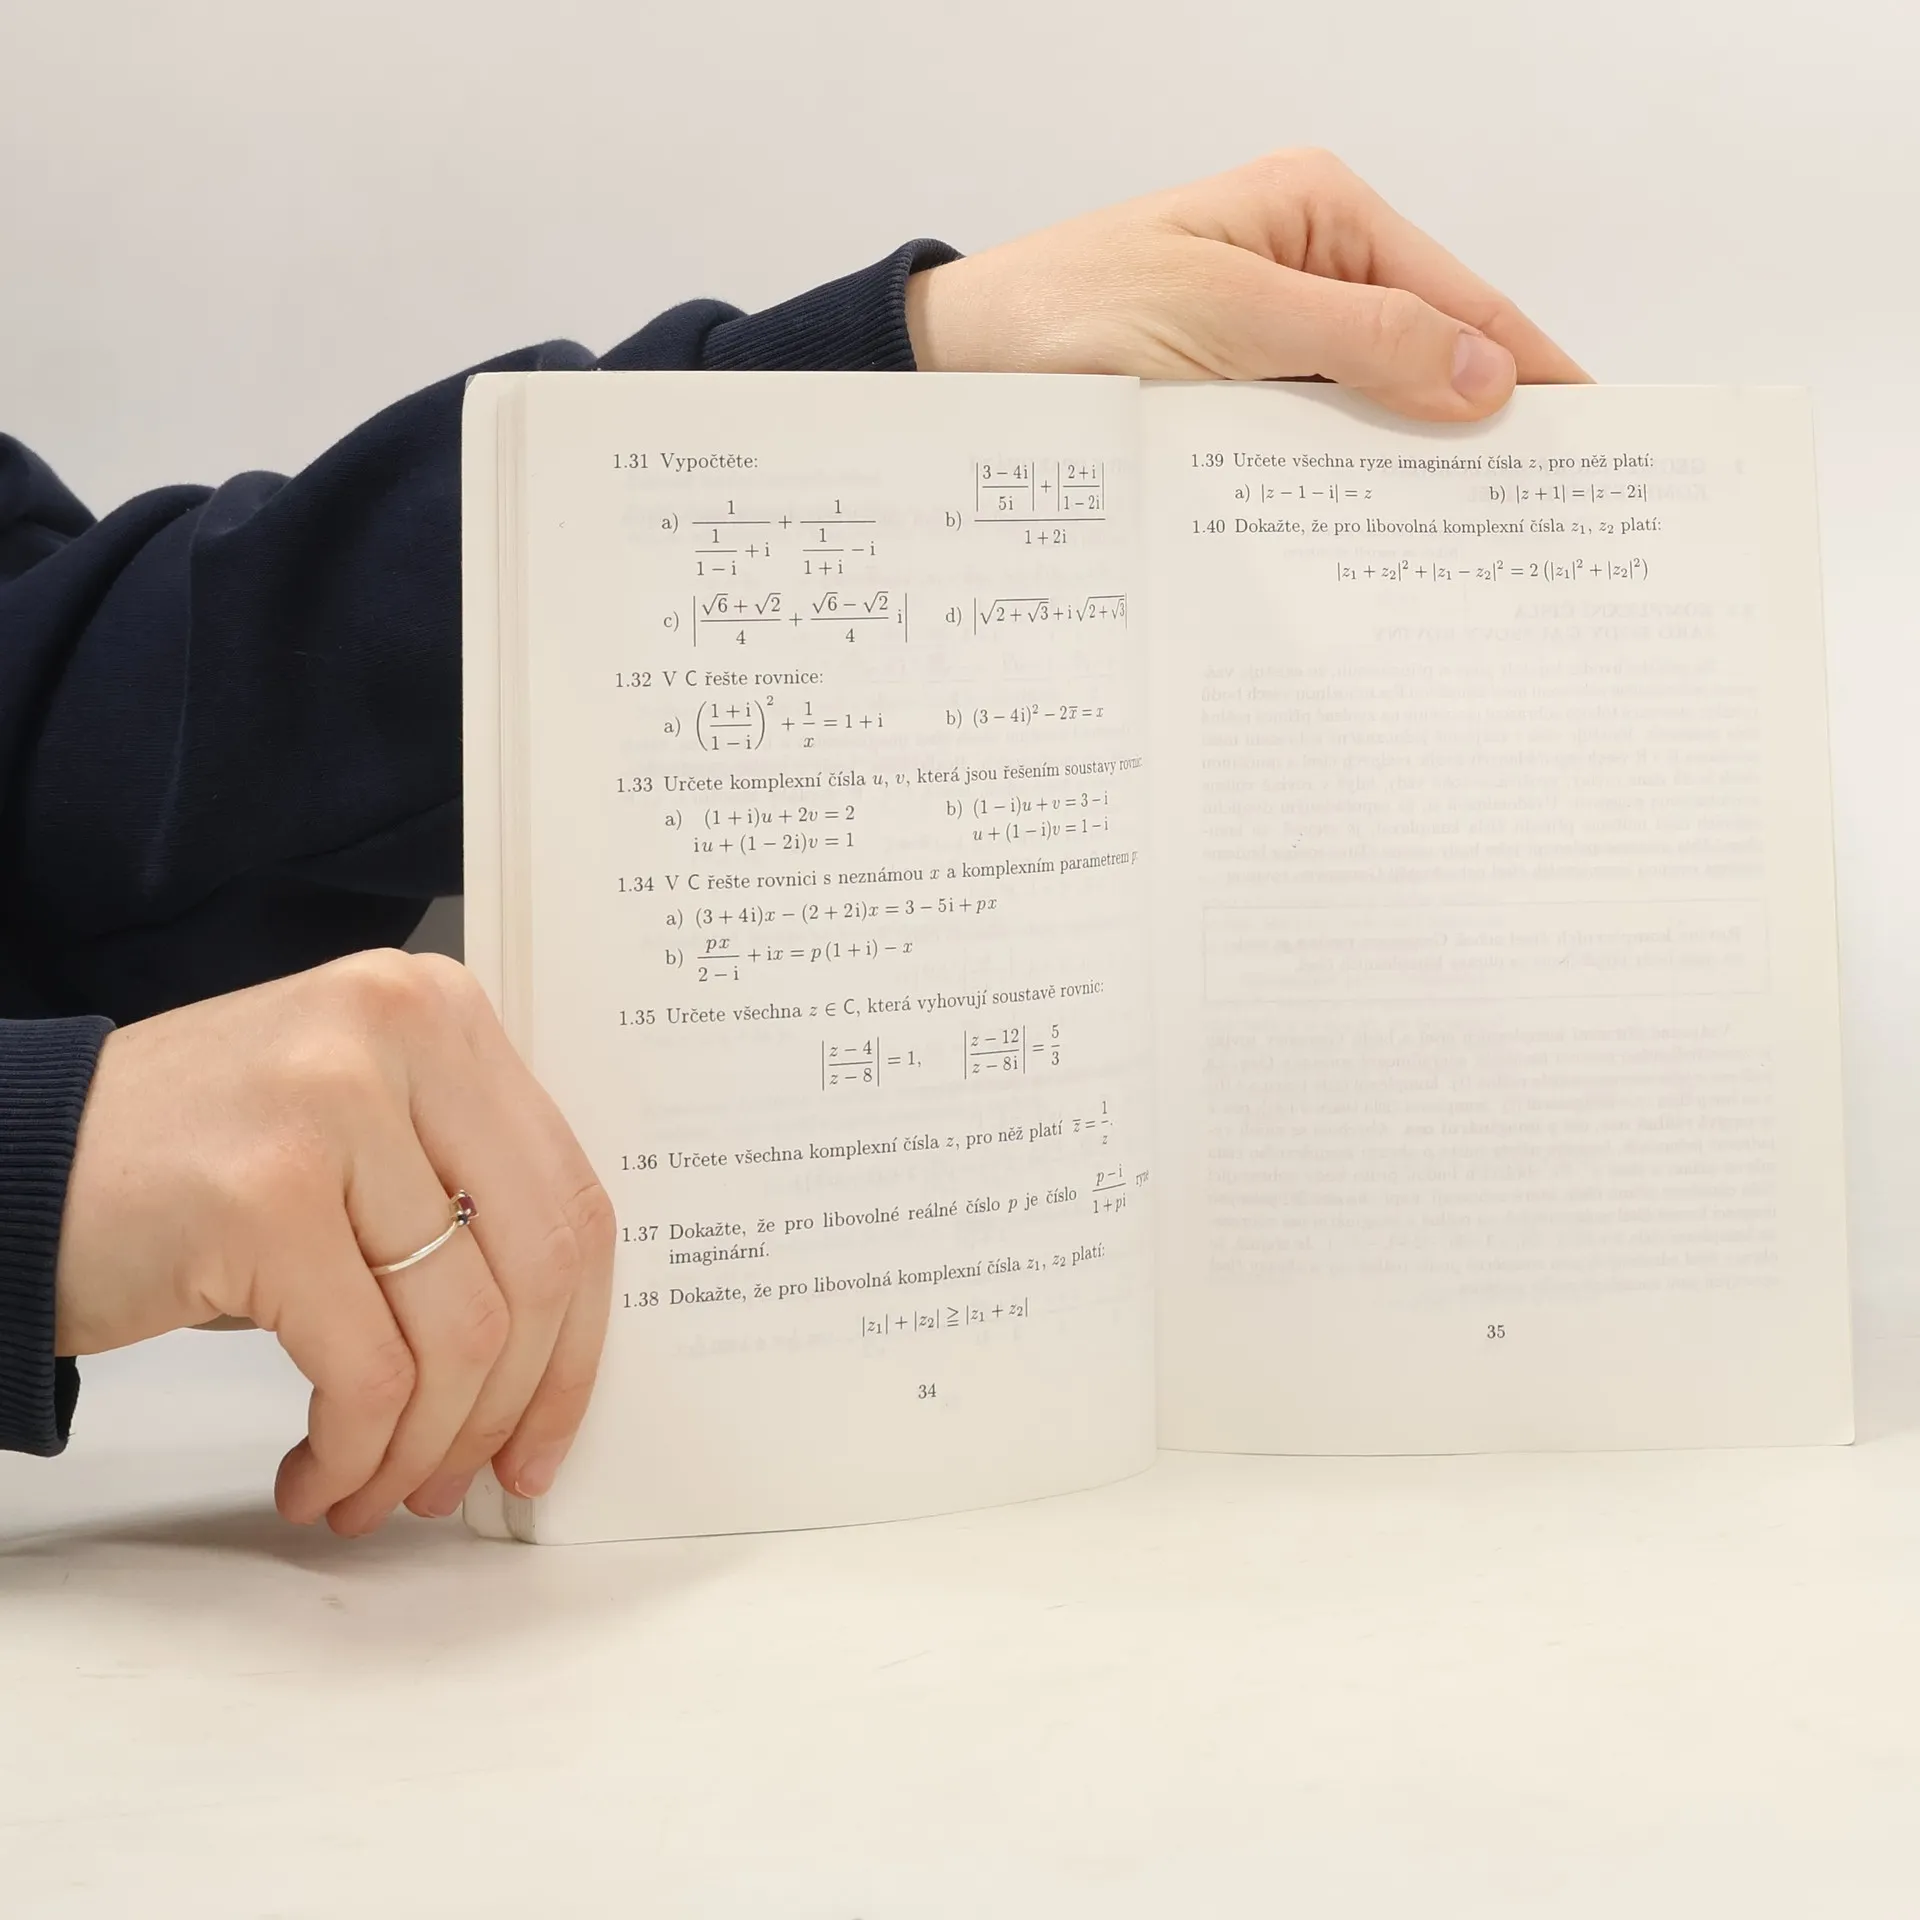 1.31 Vypočtěte:
a) \frac{1}{\frac{1}{1-i}+i} + \frac{1}{\frac{1}{1+i}-i}   b) \frac{\left|\frac{3-4i}{5i}\right|+\left|\frac{2+i}{1-2i}\right|}{1+2i}
c) \left|\frac{√6+√2}{4} + \frac{√6-√2}{4} i\right|   d) |\sqrt{2+√3}+i\sqrt{2+√3}|
1.32 V C řešte rovnice:
a) \left(\frac{1+i}{1-i}\right)^2 + \frac{1}{x} = 1+i   b) (3 − 4i)² − 2x̅ = x
1.33 Určete komplexní čísla u, v, která jsou řešením soustavy
a) (1 + i)u + 2v = 2   b) (1 − i)u + v = 3 − i
iu + (1 − 2i)v = 1   u + (1 − i)v = 1 − i
1.34 V C řešte rovnici s neznámou x a komplexním parametrem p
a) (3 + 4i)x − (2 + 2i)x = 3 − 5i + px
b) \frac{px}{2-i} + ix = p(1 + i) − x
1.35 Určete všechna z ∈ C, která vyhovují soustavě rovnic:
\left|\frac{z-4}{z-8}\right| = 1,   \left|\frac{z-12}{z-8i}\right| = \frac{5}{3}
1.36 Určete všechna komplexní čísla z, pro něž platí z̅ = \frac{1}{z}.
1.37 Dokažte, že pro libovolné reálné číslo p je číslo \frac{p-i}{1+pi} ryze
imaginární.
1.38 Dokažte, že pro libovolná komplexní čísla z₁, z₂ platí:
|z₁| + |z₂| ≧ |z₁ + z₂|
34
1.39 Určete všechna ryze imaginární čísla z, pro něž platí:
a) |z − 1 − i| = z   b) |z + 1| = |z − 2i|
1.40 Dokažte, že pro libovolná komplexní čísla z₁, z₂ platí:
|z₁ + z₂|² + |z₁ − z₂|² = 2 (|z₁|² + |z₂|²)
35